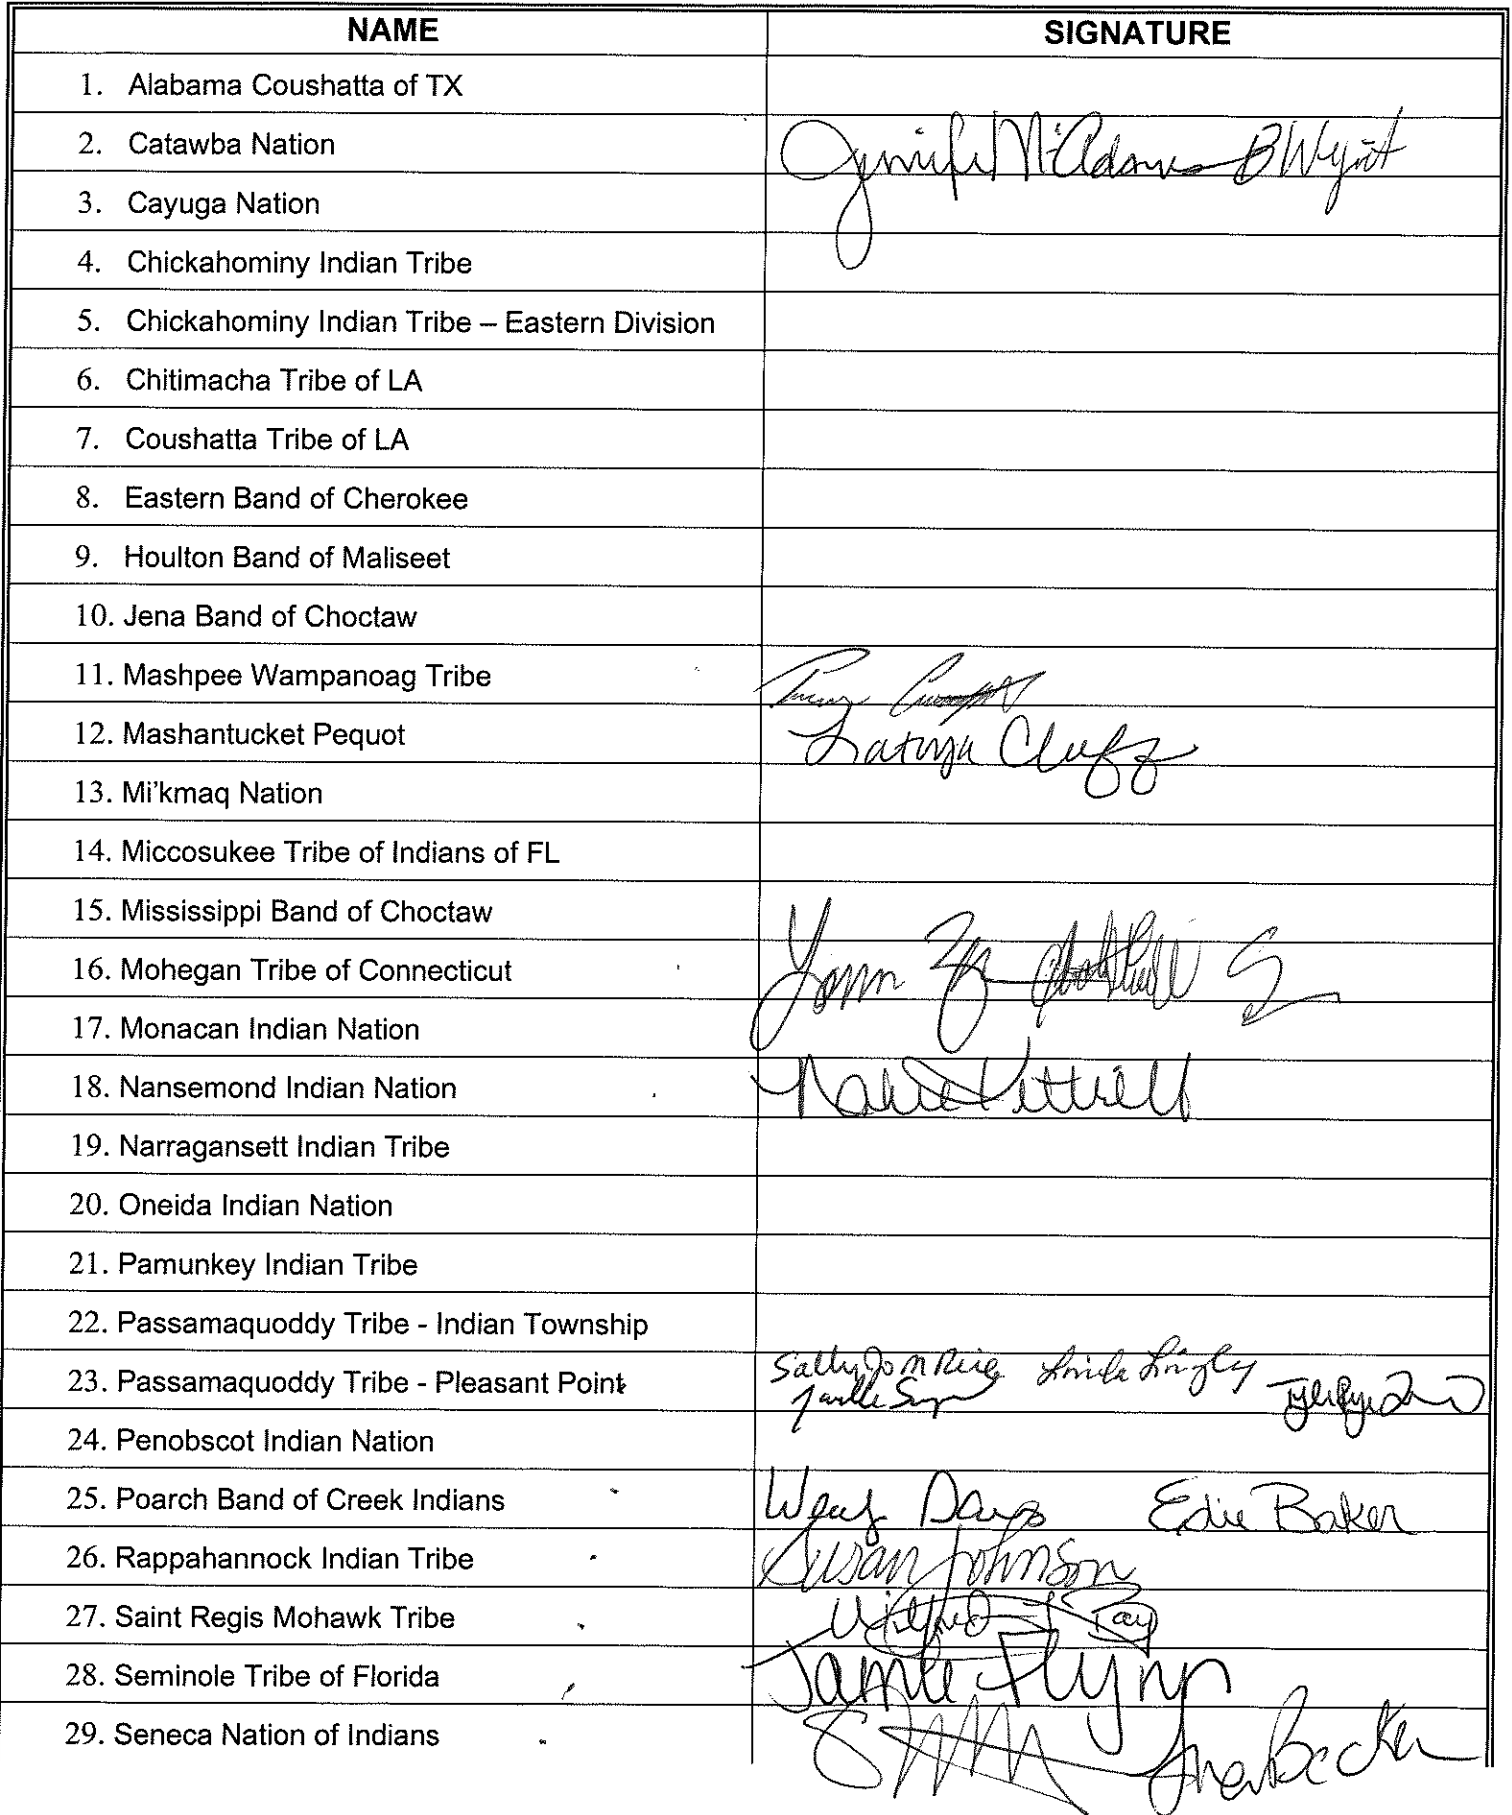 NAME SIGNATURE
1. Alabama Coushatta of TX
2. Catawba Nation Jennifer McAdams B Wyatt
3. Cayuga Nation
4. Chickahominy Indian Tribe
5. Chickahominy Indian Tribe – Eastern Division
6. Chitimacha Tribe of LA
7. Coushatta Tribe of LA
8. Eastern Band of Cherokee
9. Houlton Band of Maliseet
10. Jena Band of Choctaw
11. Mashpee Wampanoag Tribe
12. Mashantucket Pequot Latoya Cluff
13. Mi'kmaq Nation
14. Miccosukee Tribe of Indians of FL
15. Mississippi Band of Choctaw
16. Mohegan Tribe of Connecticut
17. Monacan Indian Nation
18. Nansemond Indian Nation
19. Narragansett Indian Tribe
20. Oneida Indian Nation
21. Pamunkey Indian Tribe
22. Passamaquoddy Tribe - Indian Township
23. Passamaquoddy Tribe - Pleasant Point Linda Lingley
24. Penobscot Indian Nation
25. Poarch Band of Creek Indians Edie Baker
26. Rappahannock Indian Tribe Susan Johnson
27. Saint Regis Mohawk Tribe Ray
28. Seminole Tribe of Florida Jamie Flynn
29. Seneca Nation of Indians Becker